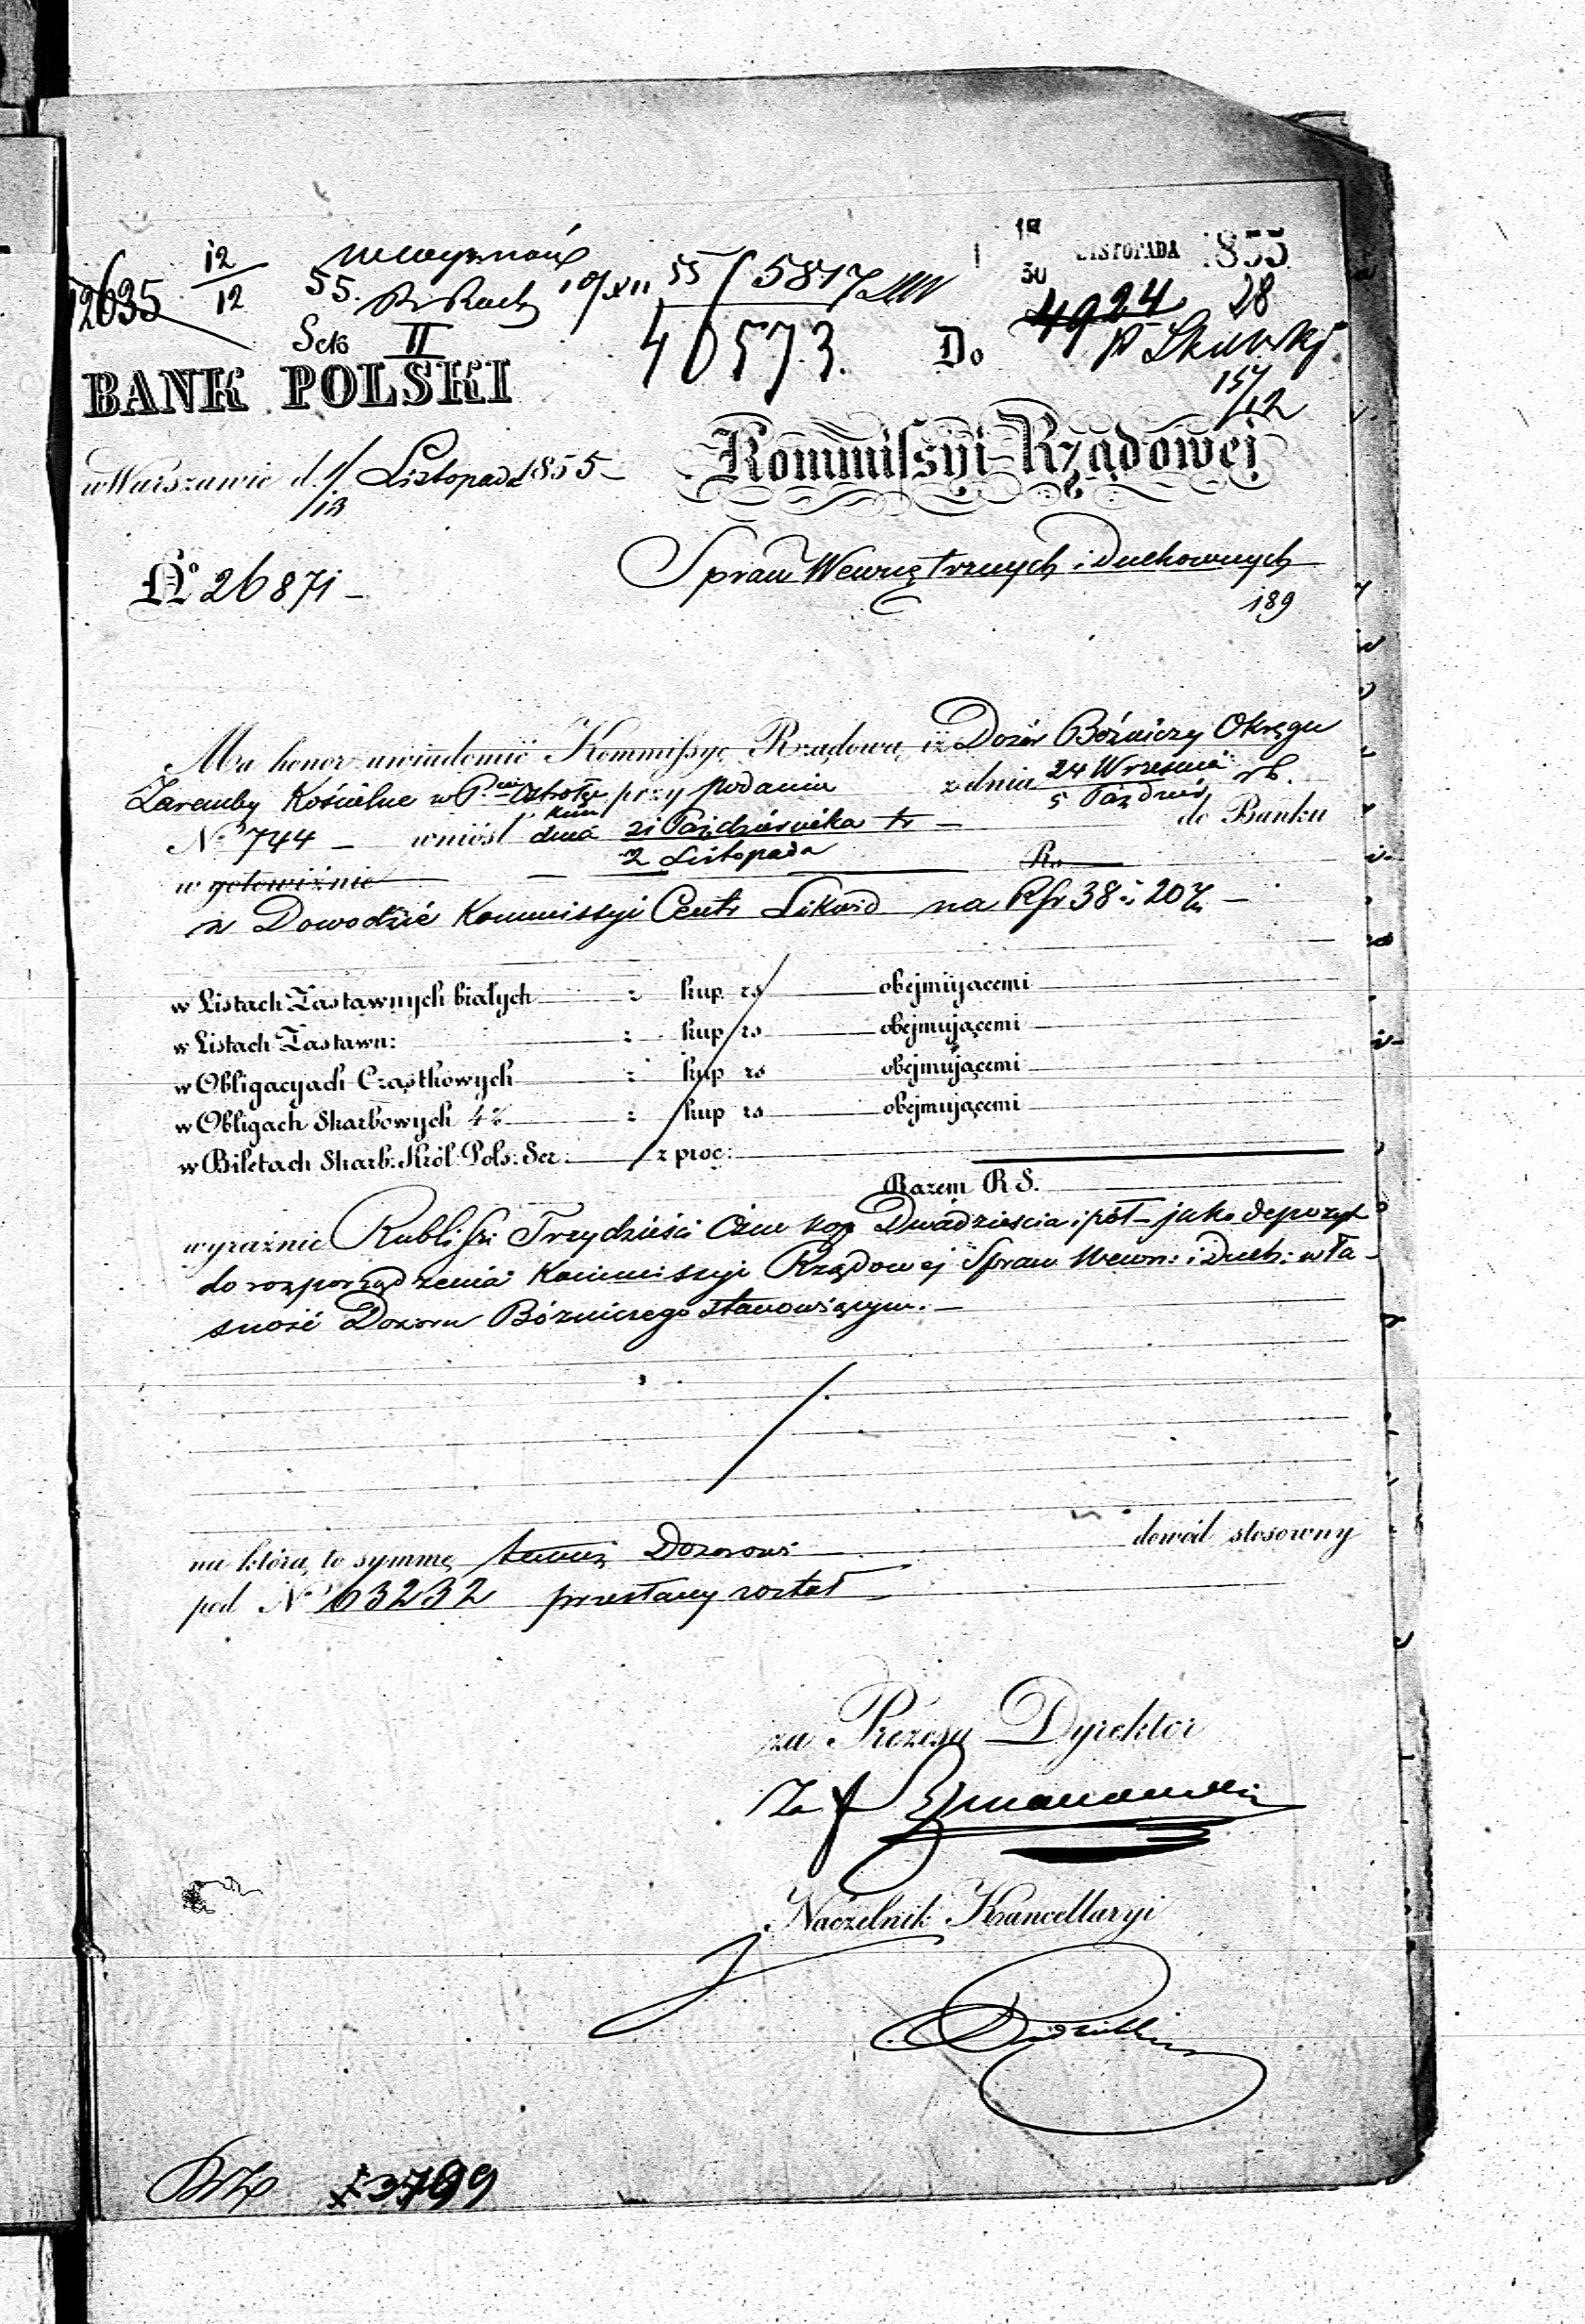 12635 12/12 55. 10/XII 55 / 5817
18/30 LISTOPADA 1855
4924 28
Sekt II
40573.
15/12
BANK POLSKI
Do
Kommissyi Rządowej
w Warszawie d. 1/13 Listopada 1855
Spraw Wewnętrznych i Duchownych
No 26871
189
Ma honor uwiadomić Kommissyę Rządową, iż Dozór Bóźniczy Okręgu
Zaremby Kościelne w P. Ostrołęckim przy podaniu z dnia 24 Września / 5 Paźdz. rb.
No 744 wniósł dnia 21 Października / 2 Listopada tr do Banku
w gotowiźnie Rs
w Dowodzie Kommissyi Centr Likwid na Rsr 38 i 20 ½
w Listach Zastawnych białych z kup. rs obejmującemi
w Listach Zastawn: z kup rs obejmującemi
w Obligacyach Cząstkowych z kup rs obejmującemi
w Obligach Skarbowych 4% z kup rs obejmującemi
w Biletach Skarb. Król. Pols. Ser. z proc:
Razem R S.
wyraźnie Rubli sr. Trzydzieści Ośm kop Dwadzieścia i pół – jako depozyt
do rozporządzenia Kommissyi Rządowej Spraw Wewn: i Duch: wła-
sność Dozoru Bóźniczego stanowiącym. –
na którą to summę temuż Dozorowi dowód stosowny
pod No 63232 przesłany został
za Prezesa Dyrektor
Za
Naczelnik Kancellaryi
3799